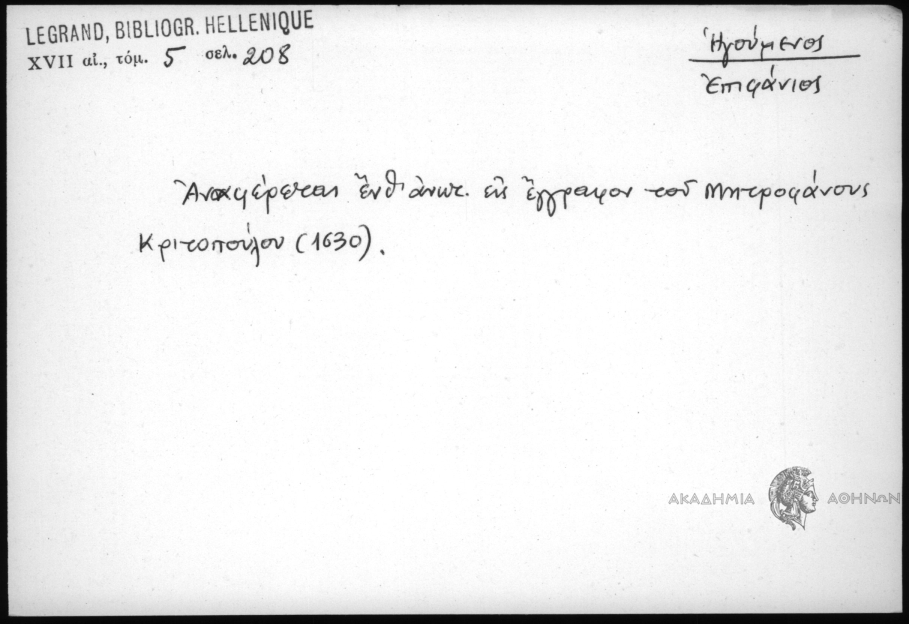 LEGRAND, BIBLIOGR. HELLENIQUE
XVII αἰ., τόμ. 5 σελ. 208
Ἡγούμενος
Ἐπιφάνιος
Ἀναφέρεται ἔνθ' ἀνωτ. εἰς ἔγγραφον τοῦ Μητροφάνους
Κριτοπούλου (1630).
ΑΚΑΔΗΜΙΑ ΑΘΗΝΩΝ